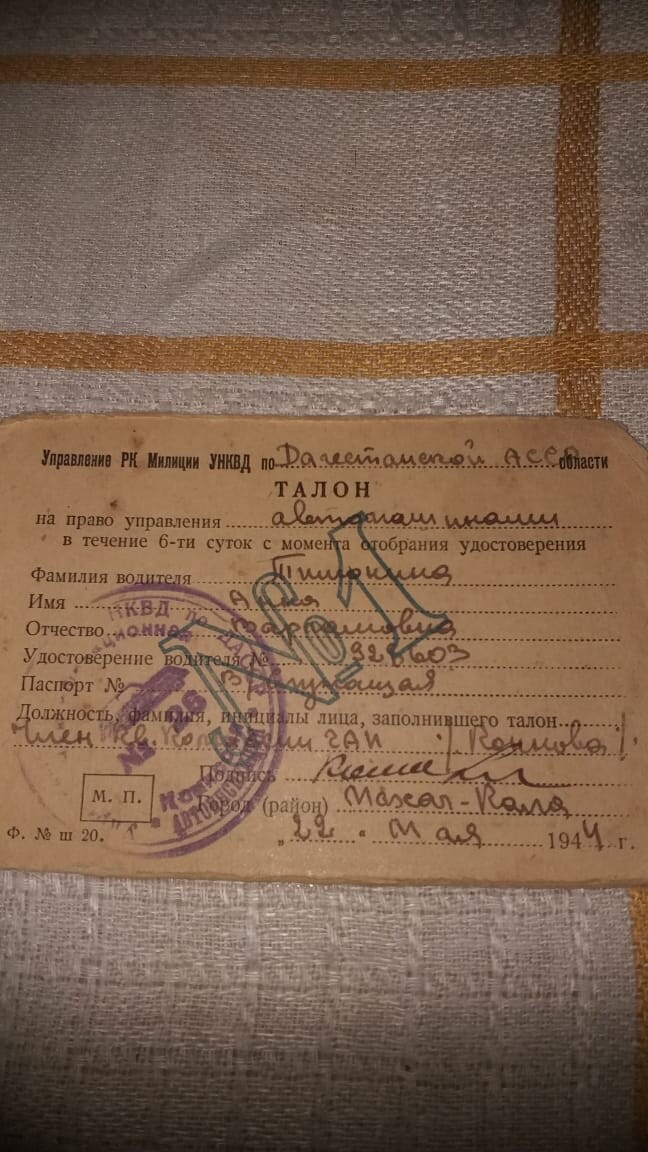 Управление РК Милиции УНКВД по Дагестанской АССР области
ТАЛОН
на право управления автомашинами
в течение 6-ти суток с момента отобрания удостоверения
Фамилия водителя
Имя
Отчество Варламовна
Удостоверение водителя №
Паспорт №
Должность, фамилия, инициалы лица, заполнившего талон
Член Кв. Комиссии ГАИ /Конкова/.
Подпись
Город (район) Махач-Кала
М. П.
Ф. № ш 20.
„22 " Мая 1944 г.
№1
НКВД по
№ 26